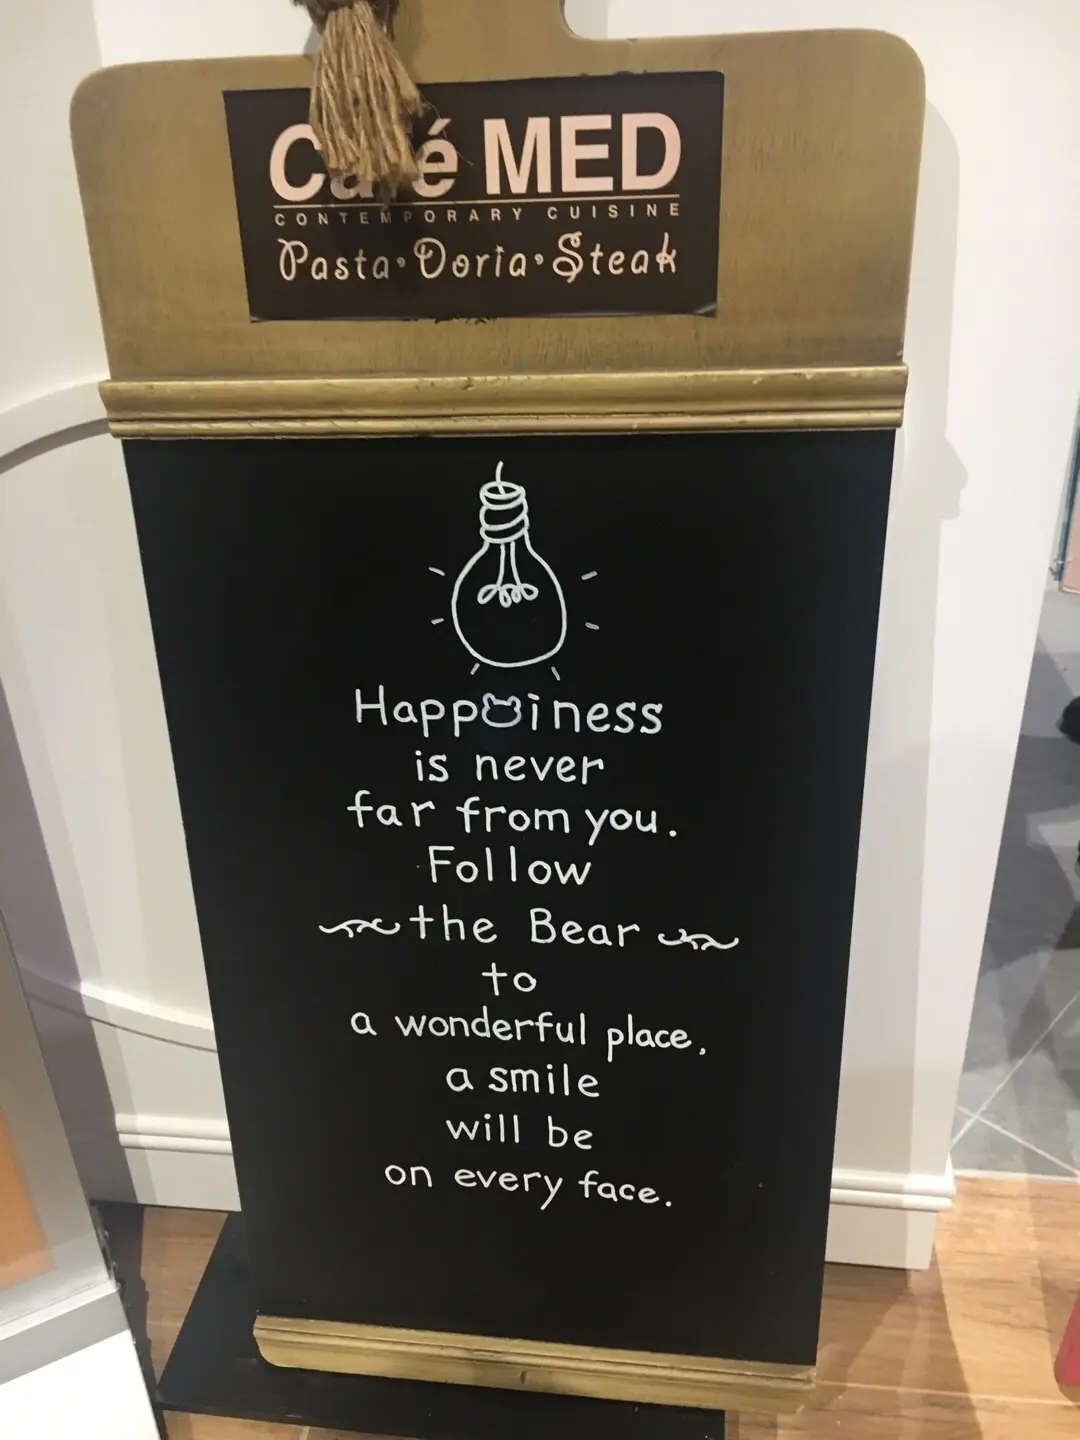 Café MED
CONTEMPORARY CUISINE
Pasta • Doria • Steak
Happiness
is never
far from you.
Follow
the Bear
to
a wonderful place,
a smile
will be
on every face.